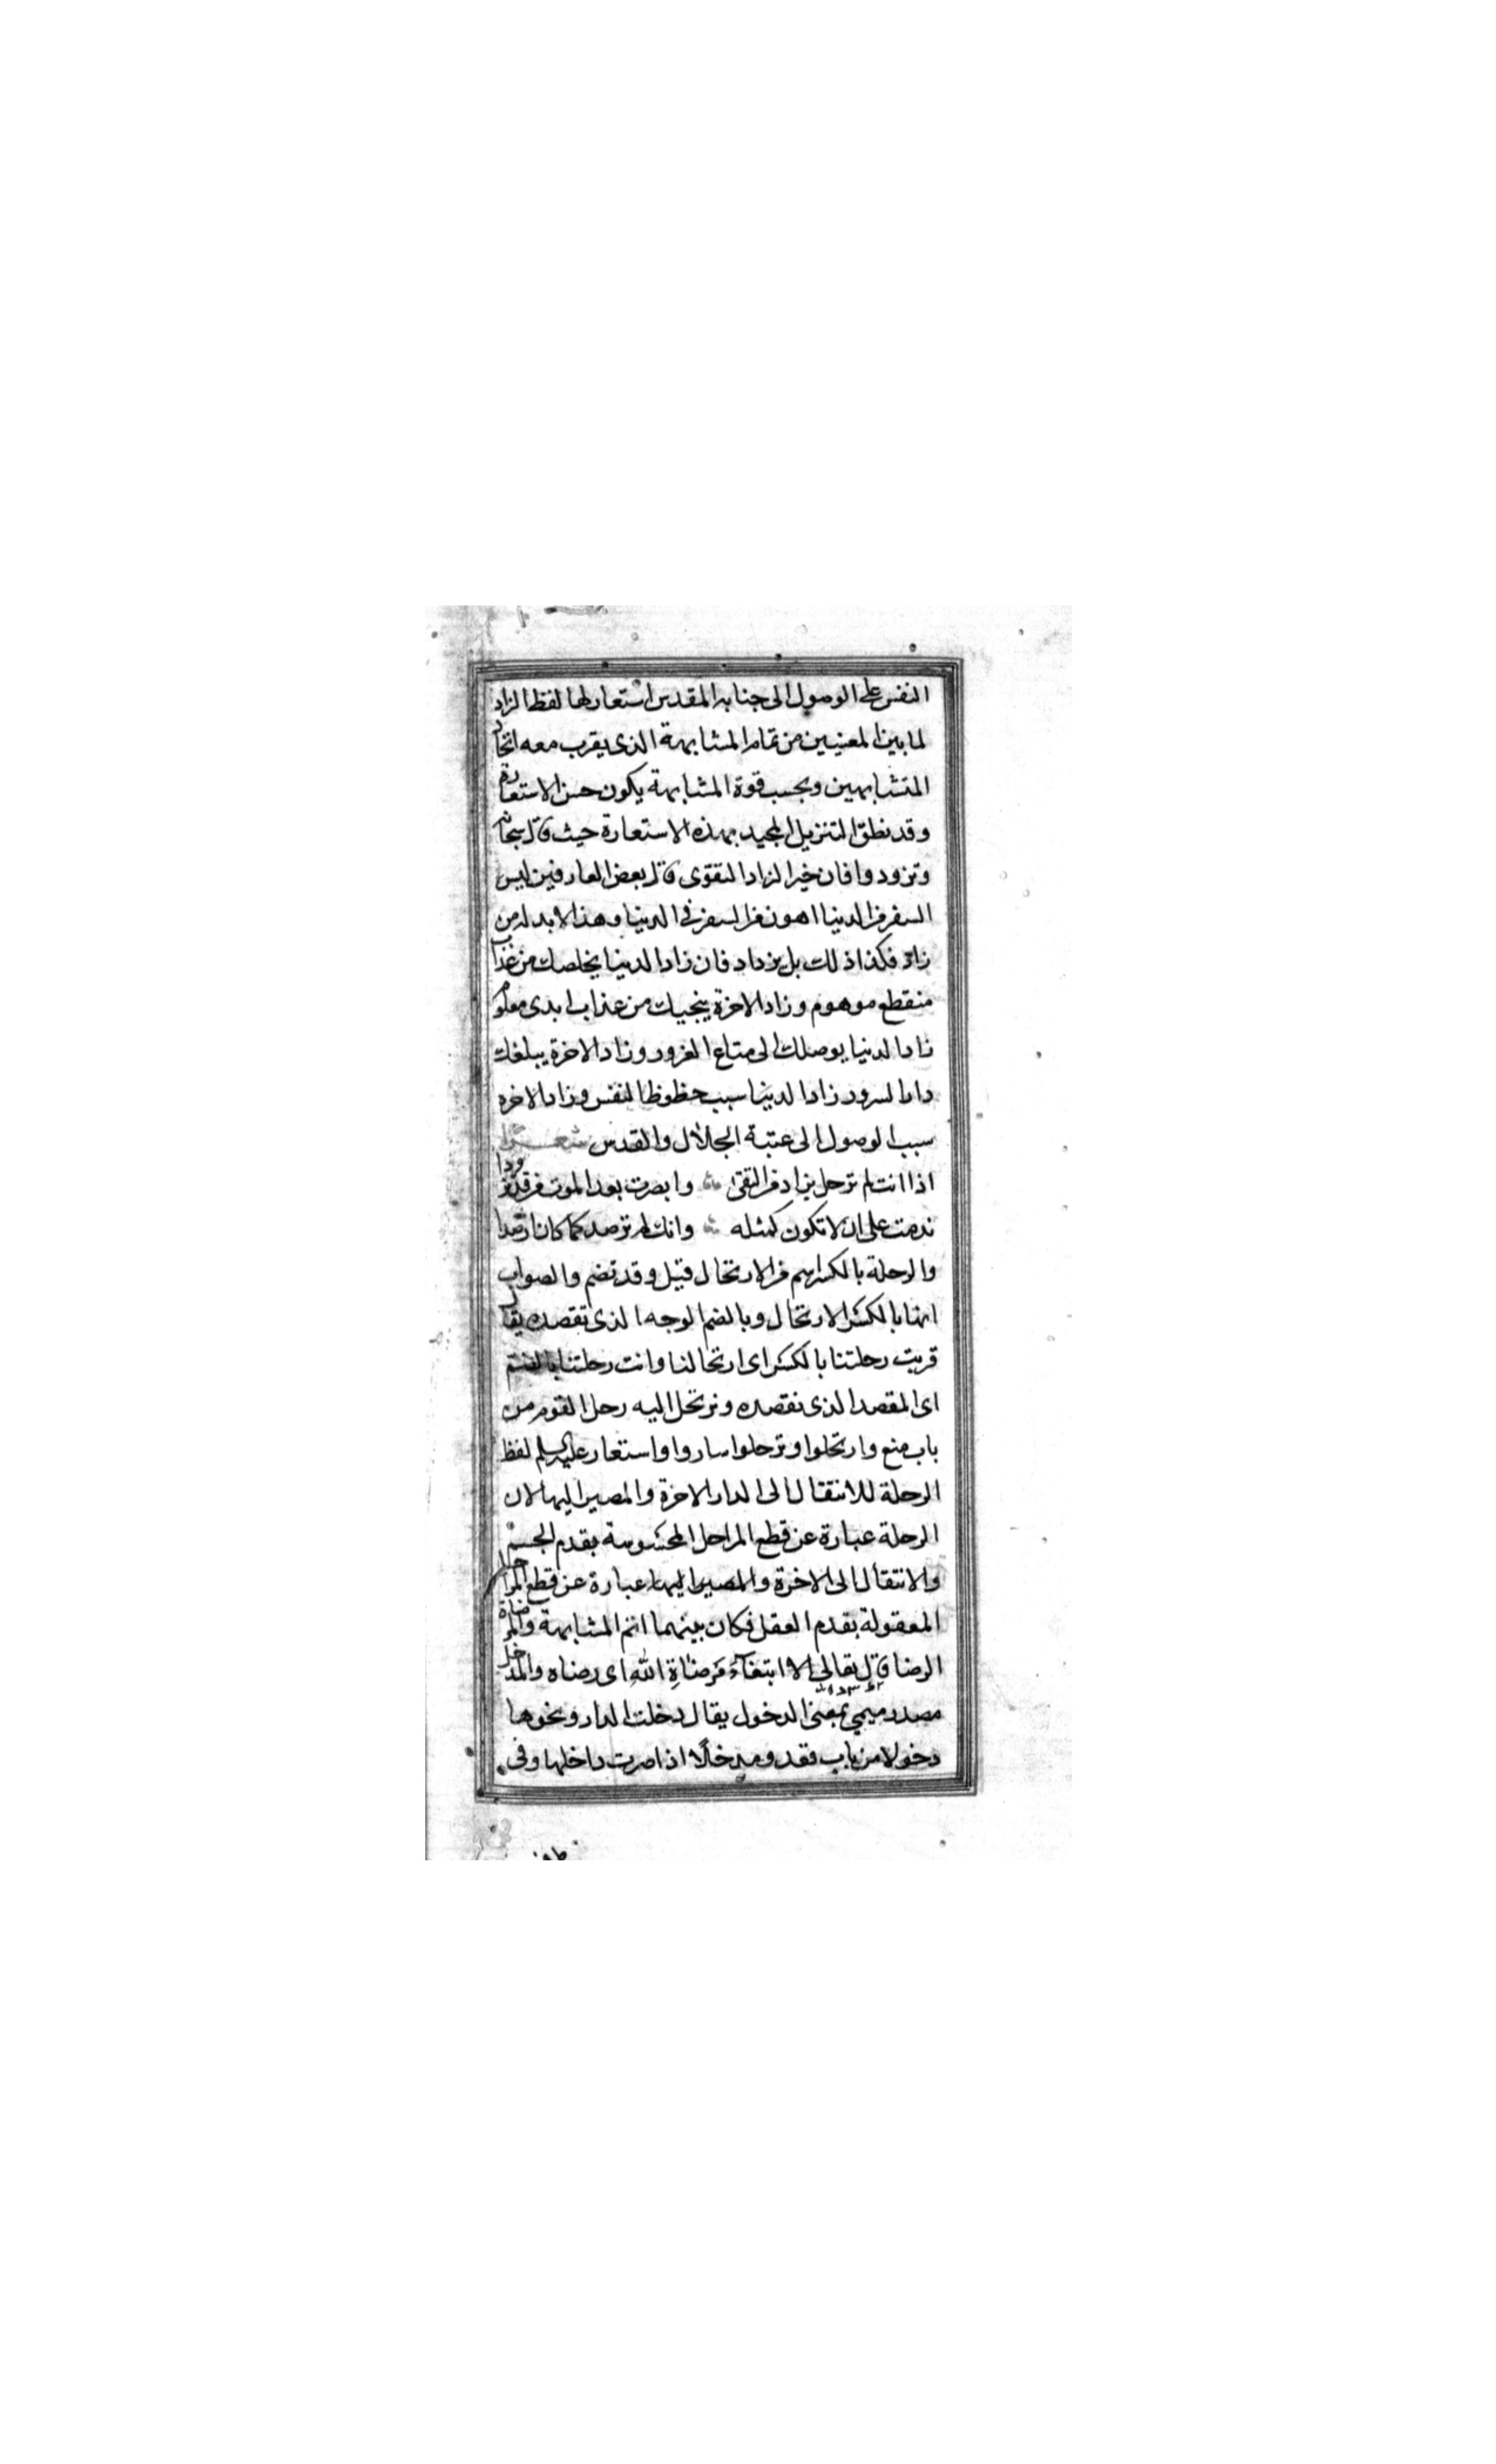 النفس على الوصول الى جنابه المقدس استعار لها لفظ الزاد
لما بين المعنيين من تمام المشابهة الذى يقرب معه اتحاد
المتشابهين وبحسب قوة المشابهة يكون حسن الاستعارة
وقد نطق التنزيل المجيد بهذه الاستعارة حيث قال سبحانه
وتزودوا فان خير الزاد التقوى قال بعض العارفين ليس
السفر من الدنيا اهون من السفر فى الدنيا وهذا لابد له من
زاد فكذا ذلك بل يزداد فان زاد الدنيا يخلصك من عذاب
منقطع موهوم وزاد الاخرة ينجيك من عذاب ابدى معلوم
زاد الدنيا يوصلك الى متاع الغرور وزاد الاخرة يبلغك
دار السرور زاد الدنيا سبب حظوظ النفس وزاد الاخره
سبب الوصول الى عتبة الجلال والقدس شعر
اذا انت لم ترحل بزاد من التقى وابصرت بعد الموت من قد تزودا
ندمت على ان لا تكون كمثله وانك لم ترصد كما كان ارصدا
والرحلة بالكسر اسم من الارتحال قيل وقد تضم والصواب
انها بالكسر الارتحال وبالضم الوجه الذى تقصده يقال
قربت رحلتنا بالكسر اى ارتحالنا وانت رحلتنا بالضم
اى المقصد الذى نقصده ونرتحل اليه رحل القوم من
باب منع وارتحلوا وترحلوا ساروا واستعار عليه السلم لفظ
الرحلة للانتقال الى الدار الاخرة والمصير اليها لان
الرحلة عبارة عن قطع المراحل المحسوسة بقدم الجسم
والانتقال الى الاخرة والمصير اليها عبارة عن قطع المراحل
المعقولة بقدم العقل فكان بينهما اتم المشابهة والمرضاة
الرضا قال تعالى الا ابتغاء مرضاة الله اى رضاه والمدخل
مصدر ميمي بمعنى الدخول يقال دخلت الدار ونحوها
دخولا من باب قعد ومدخلا اذا صرت داخلها وفى